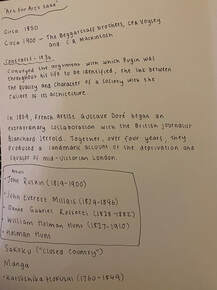 "Art for Art's Sake"
Circa 1850
Circa 1900 - The Beggarstaff Brothers, CFA Voysey
and C.R Mackintosh
Contrasts - 1836
Conveyed the argument with which Pugin was
throughout his life to be identified, the link between
the Quality and Character of a Society with the
Calibre of its Architecture.
In 1869, French artist Gustave Doré began an
extraordinary collaboration with the British journalist
Blanchard Jerrold. Together, over four years, they
produced a landmark account of the deprivation and
squalor of mid-Victorian London.
Artists
• John Ruskin (1819-1900)
• John Everett Millais (1829-1896)
• Dante Gabriel Rossetti (1828-1882)
• William Holman Hunt (1827-1910)
• Holman Hunt
Sakoku ("Closed Country")
Manga
• Katsushika Hokusai (1760-1849)